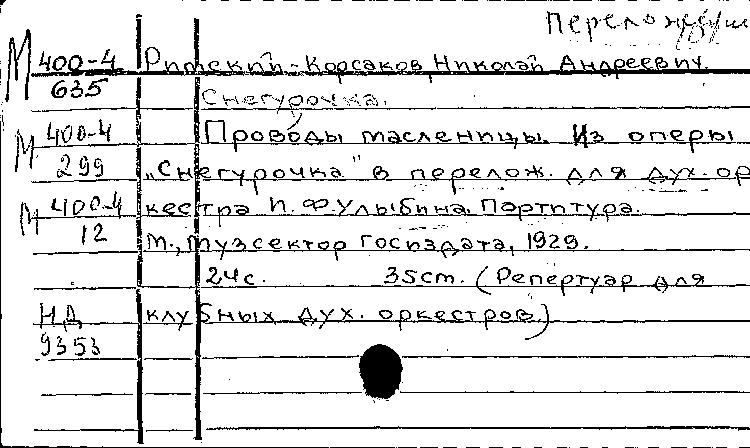 М 400-4 Римский-Корсаков, Николай Андреевич.
635 Снегурочка.
М 400-4 Проводы масленицы. Из оперы
299 „Снегурочка" в перелож. для дух. ор
М 400-4 кестра П. Ф. Улыбина. Партитура.
12 М., Музсектор Госиздата, 1929.
24 с. 35 cm. (Репертуар для
НД клубных дух. оркестров.)
9353